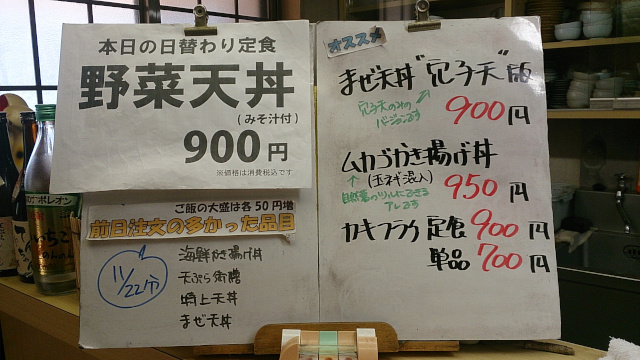 本日の日替わり定食
野菜天丼
(みそ汁付)
900円
※価格は消費税込です
ご飯の大盛は各50円増
前日注文の多かった品目
11/22分
海鮮かき揚げ丼
天ぷら御膳
特上天丼
まぜ天丼
オススメ
まぜ天丼"穴子天"版
穴子天のみの
バージョンです
900円
ムカゴかき揚げ丼
(玉ネギ混入)
950円
自然薯のツルにできる
アレです
カキフライ定食 900円
単品 700円